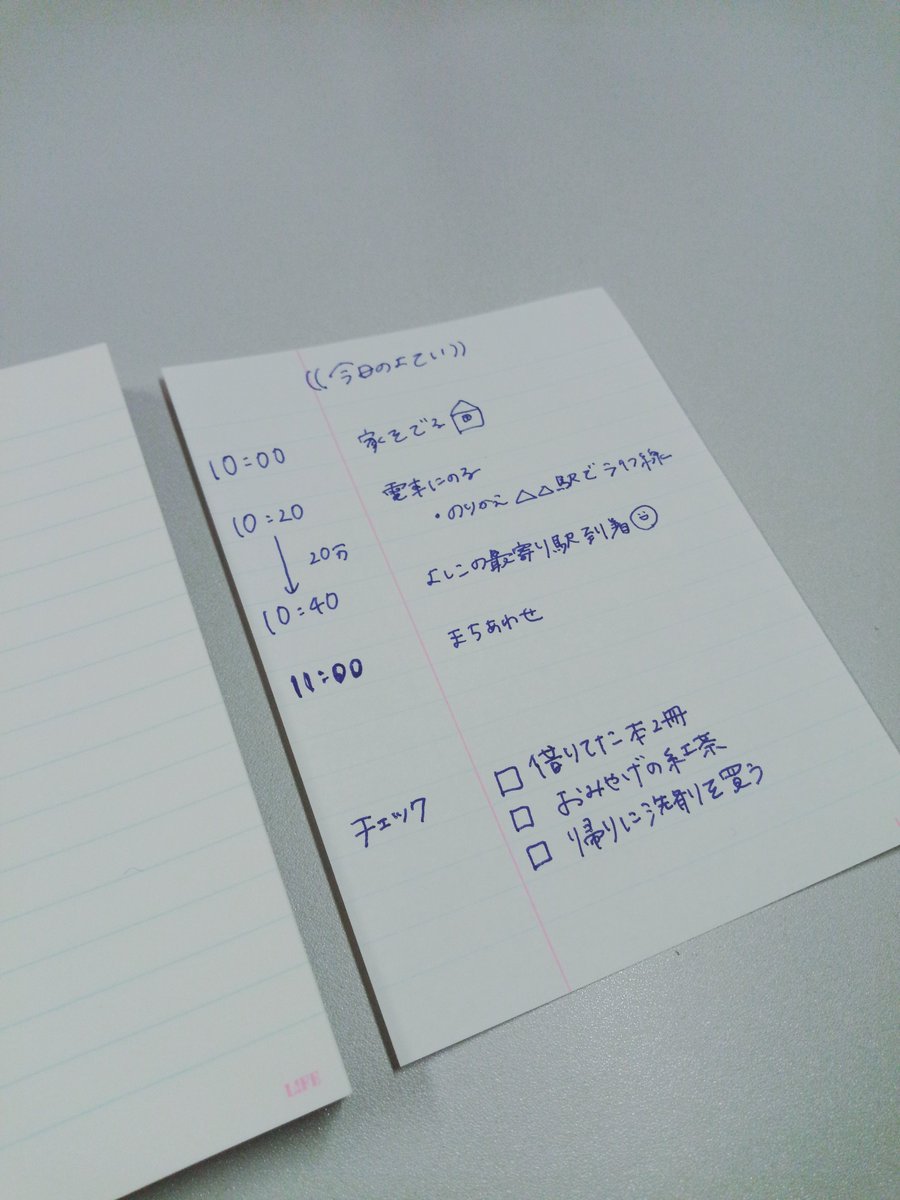 ((今日のよてい))
10:00 家をでる
10:20 電車にのる
・のりかえ △△駅で 線に
20分
10:40 よしこの最寄り駅到着
11:00 まちあわせ
チェック
□ 借りてた本2冊
□ おみやげの紅茶
□ 帰りに洗剤を買う
LIFE